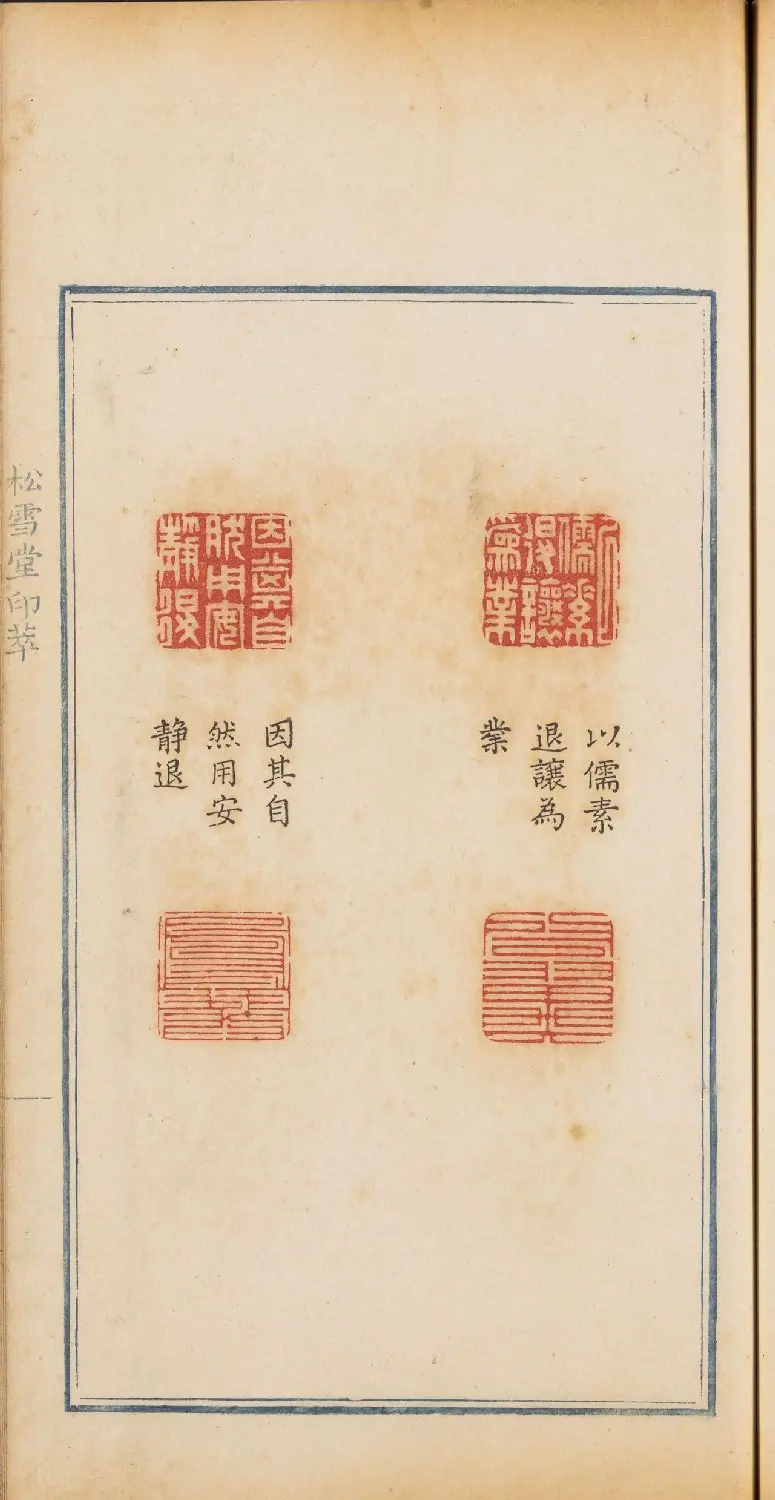 以儒素
退讓為
業
因其自
然用安
静退
松雪堂印萃